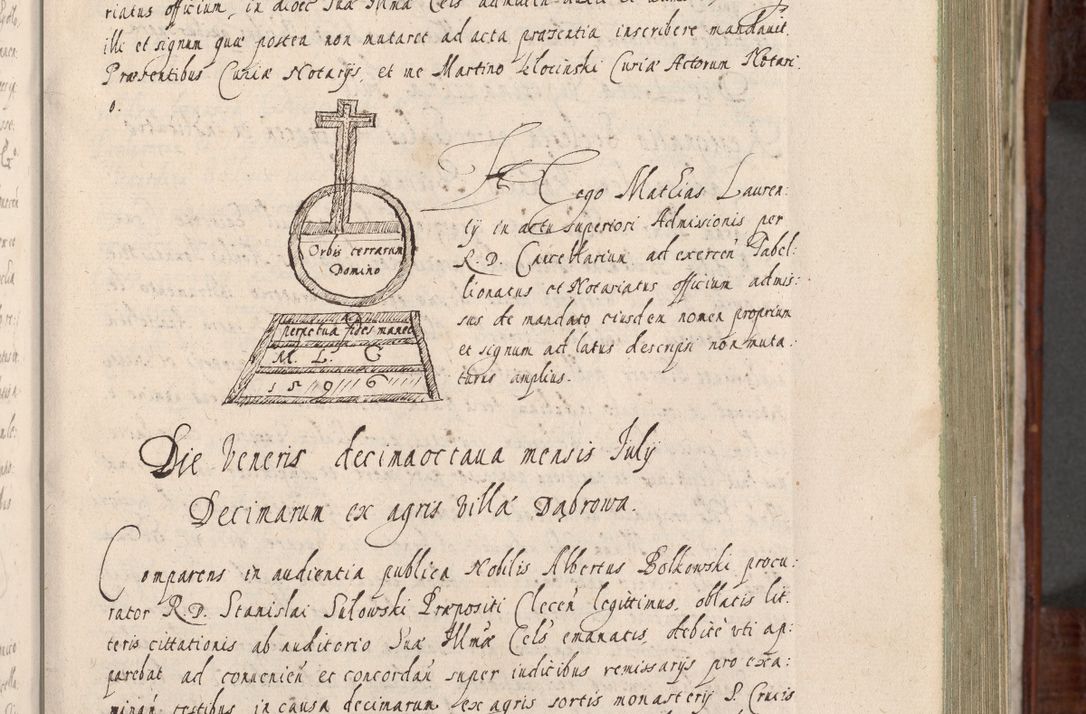 riatus officium, in dioec Suæ Illmæ Cels
illi et signum quæ postea non mutaret ad acta præsentia inscribere mandavit.
Præsentibus Curiæ Notarijs, et me Martino Klocinski Curiæ Actorum Notari
o.
Et ego Mathias Lauren:
tij in actu superiori Admissionis per
R. D. Cancellarium ad exercen̄ Tabel:
lionatus et Notariatus officium admis:
sus de mandato eiusdem nomen proprium
et signum ad latus descripsi non muta:
turus amplius.
Orbis terrarum
Domino
perpetua fides manet
M. L. C
1 5 9 1 6
Die Veneris decima octaua mensis July
Decimarum ex agris villæ Dąbrowa.
Comparens in audientia publica Nobilis Albertus Bolkowski procu:
rator R. D. Stanislai Sulowski Præpositi Clecen̄ legittimus, oblatis lit:
teris cittationis ab auditorio Suæ Illmæ Cels emanatis, debite vti ap:
parebat ad conuenien̄ et concordan̄ super iudicibus remissarijs pro exa:
minan̄ testibus in causa decimarum ex agris sortis monasterij S. Crucis